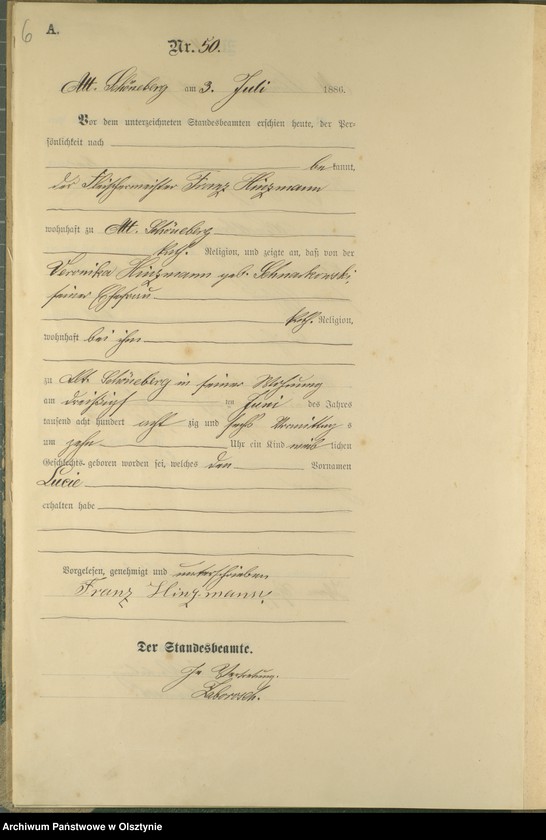 6
A.
Nr. 50.
Alt. Schöneberg am 3. Juli 1886.
Vor dem unterzeichneten Standesbeamten erschien heute, der Per-
sönlichkeit nach
be kannt,
der Fleischermeister Franz Hinzmann
wohnhaft zu Alt. Schöneberg
kath. Religion, und zeigte an, daß von der
Veronika Hinzmann geb. Schnarkowski,
seiner Ehefrau
kath. Religion,
wohnhaft bei ihm
zu Alt. Schöneberg in seiner Wohnung
am dreißigst en Juni des Jahres
tausend acht hundert acht zig und sechs Vormittag s
um zehn Uhr ein Kind weib lichen
Geschlechts geboren worden sei, welches den Vornamen
Lucie
erhalten habe
Vorgelesen, genehmigt und unterschrieben
Franz Hinzmann,
Der Standesbeamte.
In Vertretung.
Archiwum Państwowe w Olsztynie